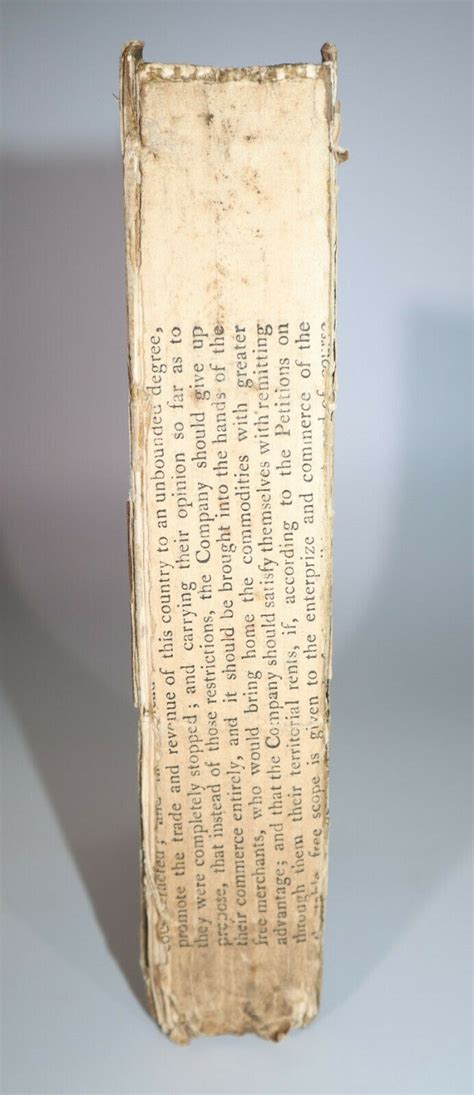 promote the trade and revenue of this country to an unbounded degree,
they were completely stopped; and carrying their opinion so far as to
propose, that instead of those restrictions, the Company should give up
their commerce entirely, and it should be brought into the hands of the
free merchants, who would bring home the commodities with greater
advantage; and that the Company should satisfy themselves with remitting
through them their territorial rents, if, according to the Petitions on
free scope is given to the enterprize and commerce of the